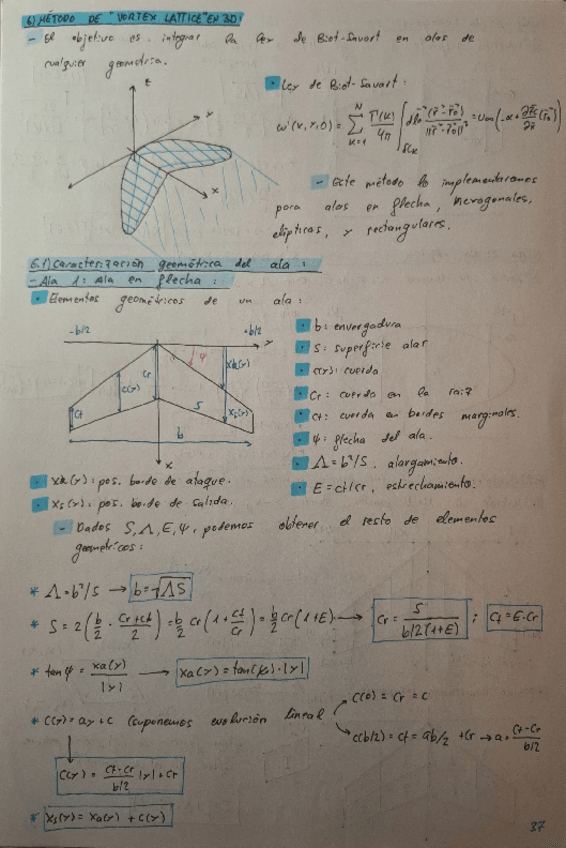 6) MÉTODO DE "VORTEX LATTICE" EN 3D:
- El objetivo es integrar la Ley de Biot-Savart en alas de
cualquier geometría.
• Ley de Biot-Savart:
z
y
x
- Este método lo implementaremos
para alas en flecha, hexagonales,
elípticas, y rectangulares.
6.1) Caracterización geométrica del ala:
- Ala 1: Ala en flecha:
• Elementos geométricos de un ala:
-b/2
+b/2
y
Cr
c(y)
Ct
ψ
xa(y)
S
xs(y)
b
x
• b: envergadura
• S: superficie alar
• c(y): cuerda
• Cr: cuerda en la raiz
• Ct: cuerda en bordes marginales.
• ψ: flecha del ala.
• Λ=b²/S, alargamiento.
• E=ct/cr, estrechamiento.
• xa(y): pos. borde de ataque.
• xs(y): pos. borde de salida.
- Dados S, Λ, E, ψ, podemos obtener el resto de elementos
geométricos:
* Λ=b²/S → b=√ΛS
* S = 2(b/2 · (Cr+Ct)/2) = b/2 Cr(1+Ct/Cr) = b/2 Cr(1+E) → Cr = S/(b/2(1+E)) ; Ct=E·Cr
* tanψ = xa(y)/|y| → xa(y)=tan(ψ)·|y|
* C(y)=ay+c (suponemos evolución lineal
c(0)=Cr=c
c(b/2)=Ct=ab/2 +Cr → a=(Ct-Cr)/(b/2)
C(y) = (Ct-Cr)/(b/2) |y|+Cr
* xs(y)=xa(y)+c(y)
37